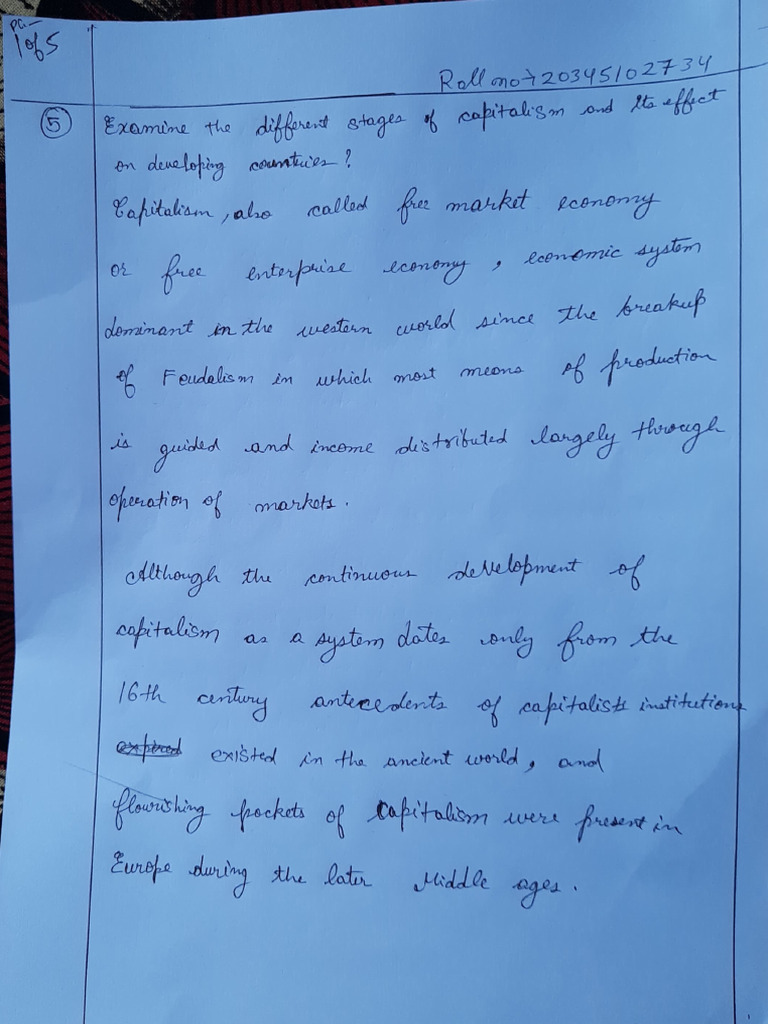 PG-
1 of 5
Roll no→ 20345102734
5 Examine the different stages of capitalism and its effect
on developing countries?
Capitalism, also called free market economy
or free enterprise economy, economic system
dominant in the western world since the breakup
of Feudalism in which most means of production
is guided and income distributed largely through
operation of markets.
Although the continuous development of
capitalism as a system dates only from the
16th century antecedents of capitalists institutions
expired existed in the ancient world, and
flourishing pockets of capitalism were present in
Europe during the later Middle ages.